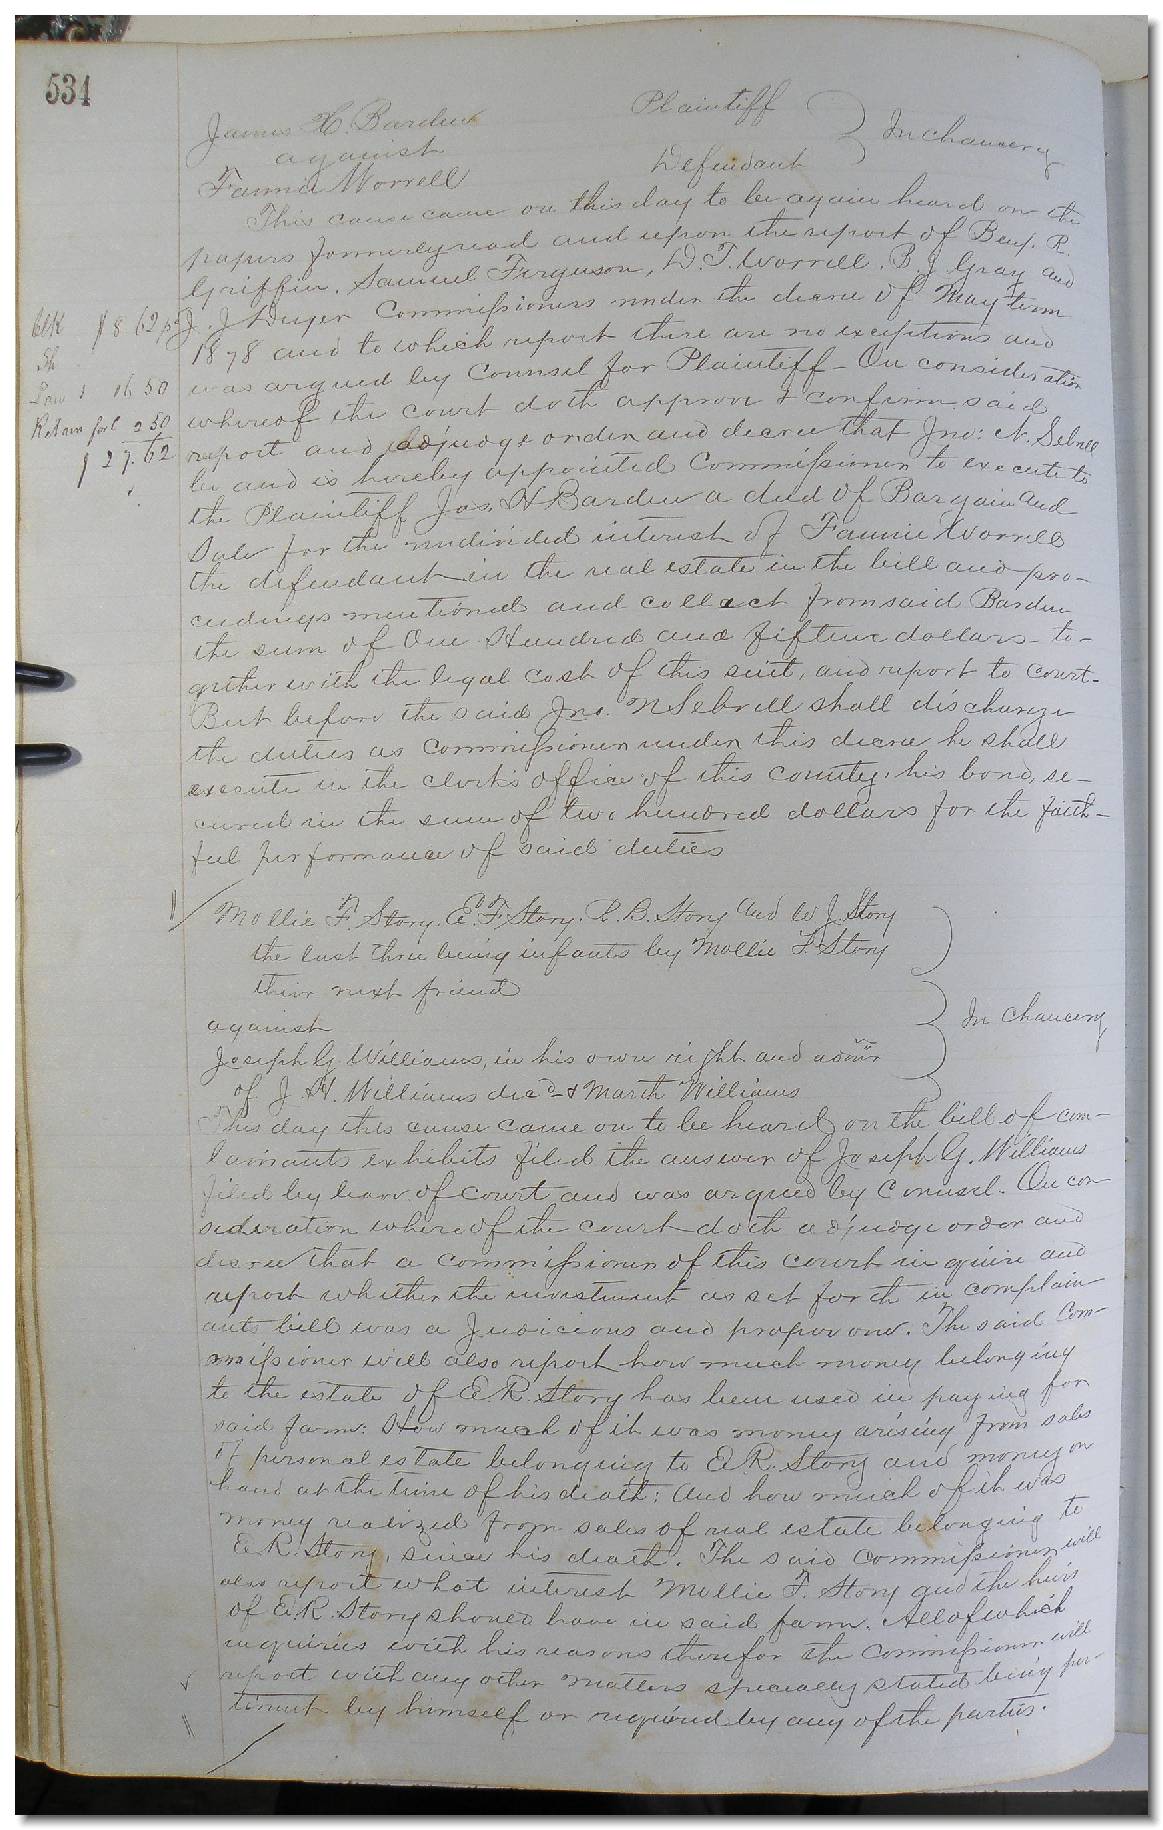 534
James H. Barden Plaintiff
against In chancery
Fannie Worrell Defendant
This cause came on this day to be again heard on the
papers formerly read and upon the report of Benj. R.
Griffin, Samuel Ferguson, D. T. Worrell, B. J. Gray and
J. J. Dwyer Commissioners under the decree of May term
1878 and to which report there are no exceptions and
was argued by Counsel for Plaintiff - On consideration
whereof the court doth approve & confirm said
report and adjudge order and decree that Jno: N. Sebrell
be and is hereby appointed Commissioner to execute to
the Plaintiff Jas. H Barden a deed of Bargain and
Sale for the undivided interest of Fannie Worrell
the defendant in the real estate in the bill and pro-
ceedings mentioned and collect from said Barden
the sum of One Hundred and fifteen dollars - to-
gether with the legal cost of this suit, and report to court-
But before the said Jno. N Sebrell shall discharge
the duties as commissioner under this decree he shall
execute in the clerk's office of this county, his bond, se-
cured in the sum of two hundred dollars for the faith-
ful performance of said duties
Clk $8 62
Sh
Law 16 50
2 50
$27.62
Mollie F. Story. E. F Story. B. Story and W J Story
the last three being infants by Mollie F. Story
their next friend
against In Chancery
Joseph G Williams, in his own right and admr
of J. H. Williams decd & Williams
This day this cause came on to be heard on the bill of com-
lainants exhibits filed the answer of Joseph G. Williams
filed by leave of court and was argued by Counsel. On con
sideration whereof the court doth adjudge order and
decree that a commissioner of this court inquire and
report whether the investment as set forth in complain
ants bill was a judicious and proper one. The said Com-
missioner will also report how much money belonging
to the estate of E. R. Story has been used in paying for
said farm: How much of it was money arising from sales
of personal estate belonging to E. R. Story and money on
hand at the time of his death: and how much of it was
money realized from sales of real estate belonging to
E. R. Story, since his death. The said Commissioner will
also report what interest Mollie F. Story and the heirs
of E. R. Story should have in said farm. All of which
inquiries with his reasons therefor the Commissioner will
report with any other matters specially stated being per-
tinent by himself or required by any of the parties.